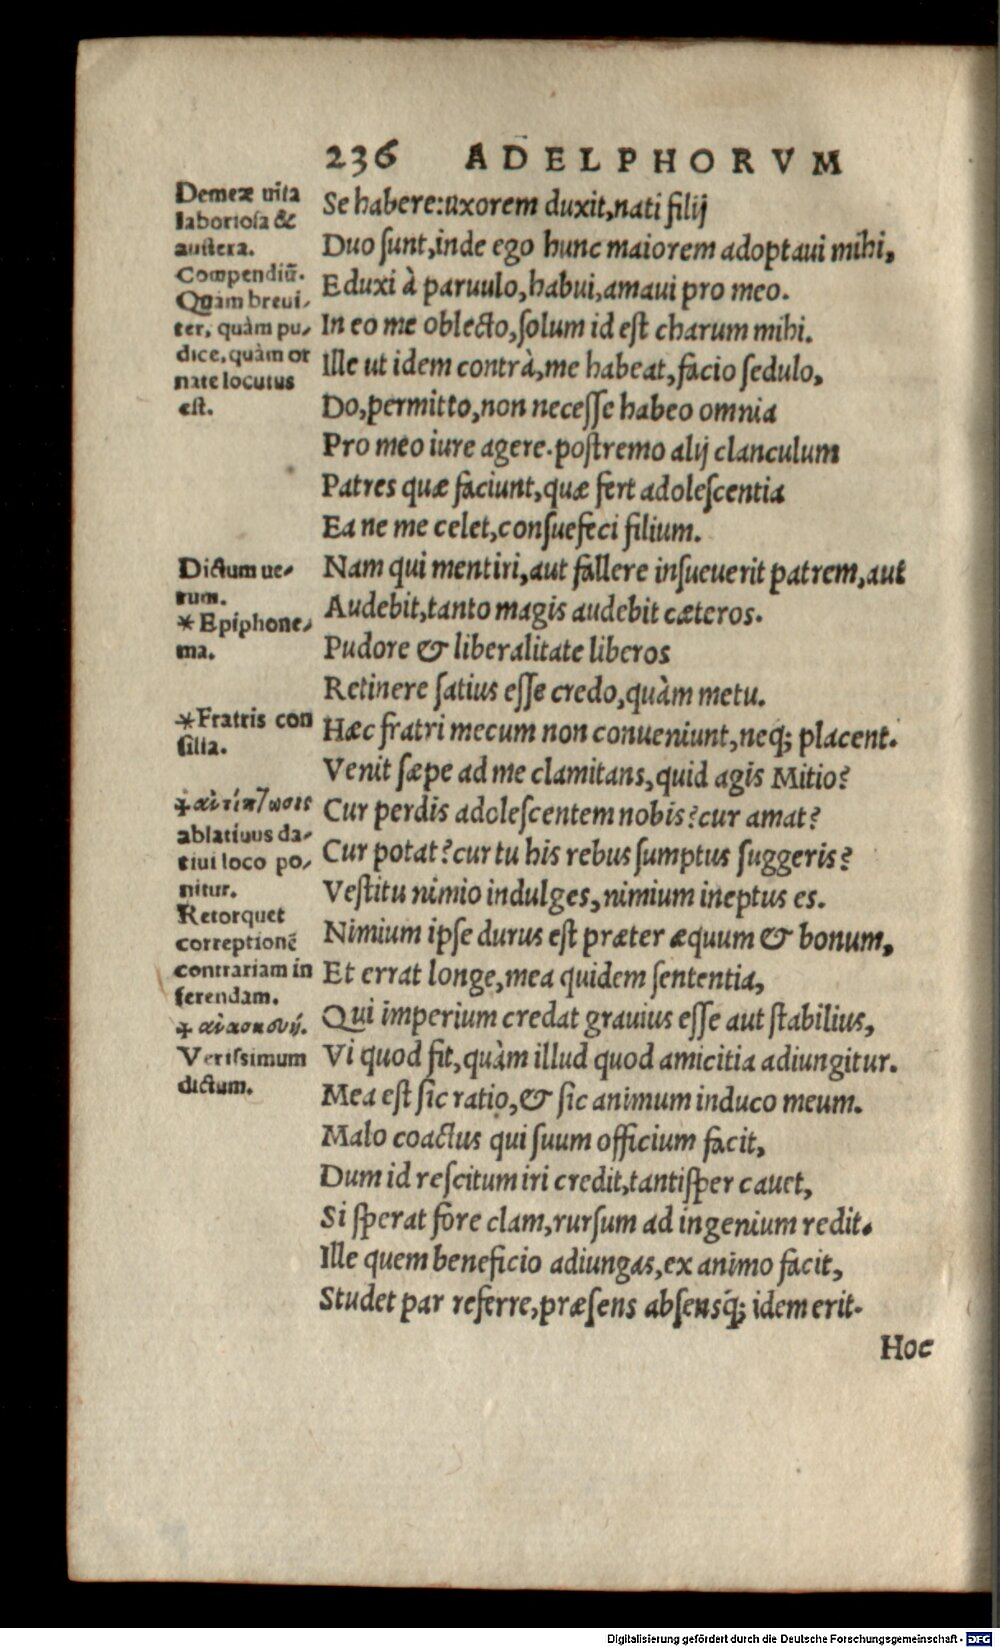 236 ADELPHORVM
Demeæ uita
laboriosa &
austera.
Compendiũ.
Quàm breui-
ter, quàm pu-
dice, quàm or
nate locutus
est.
Se habere:uxorem duxit,nati filij
Duo sunt,inde ego hunc maiorem adoptaui mihi,
Eduxi à paruulo,habui,amaui pro meo.
In eo me oblecto,solum id est charum mihi.
Ille ut idem contrà,me habeat,facio sedulo,
Do,permitto,non necesse habeo omnia
Pro meo iure agere.postremo alij clanculum
Patres quæ faciunt,quæ fert adolescentia
Ea ne me celet,consuefeci filium.
Dictum ue-
rum.
* Epiphone-
ma.
Nam qui mentiri,aut fallere insueuerit patrem,aut
Audebit,tanto magis audebit cæteros.
Pudore & liberalitate liberos
Retinere satius esse credo,quàm metu.
*Fratris con
silia.
Hæc fratri mecum non conueniunt,neq; placent.
Venit sæpe ad me clamitans,quid agis Mitio?
Cur perdis adolescentem nobis?cur amat?
Cur potat?cur tu his rebus sumptus suggeris?
Vestitu nimio indulges,nimium ineptus es.
ablatiuus da-
tiui loco po-
nitur.
Retorquet
correptionẽ
contrariam in
ferendam.
Nimium ipse durus est præter æquum & bonum,
Et errat longe,mea quidem sententia,
Qui imperium credat grauius esse aut stabilius,
Vi quod fit,quàm illud quod amicitia adiungitur.
Verissimum
dictum.
Mea est sic ratio,& sic animum induco meum.
Malo coactus qui suum officium facit,
Dum id rescitum iri credit,tantisper cauet,
Si sperat fore clam,rursum ad ingenium redit.
Ille quem beneficio adiungas,ex animo facit,
Studet par referre,præsens absensq́; idem erit.
Hoc
Digitalisierung gefördert durch die Deutsche Forschungsgemeinschaft - DFG